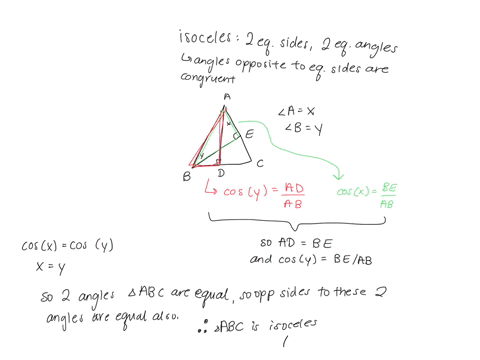 isoceles: 2 eq. sides, 2 eq. angles
↳ angles opposite to eq. sides are
congruent
A
x
E
y
B
D
C
∠A = x
∠B = y
↳ cos(y) = AD/AB
cos(x) = BE/AB
so AD = BE
and cos(y) = BE/AB
cos(x) = cos (y)
x = y
so 2 angles △ABC are equal, so opp sides to these 2
angles are equal also.
∴ △ABC is isoceles